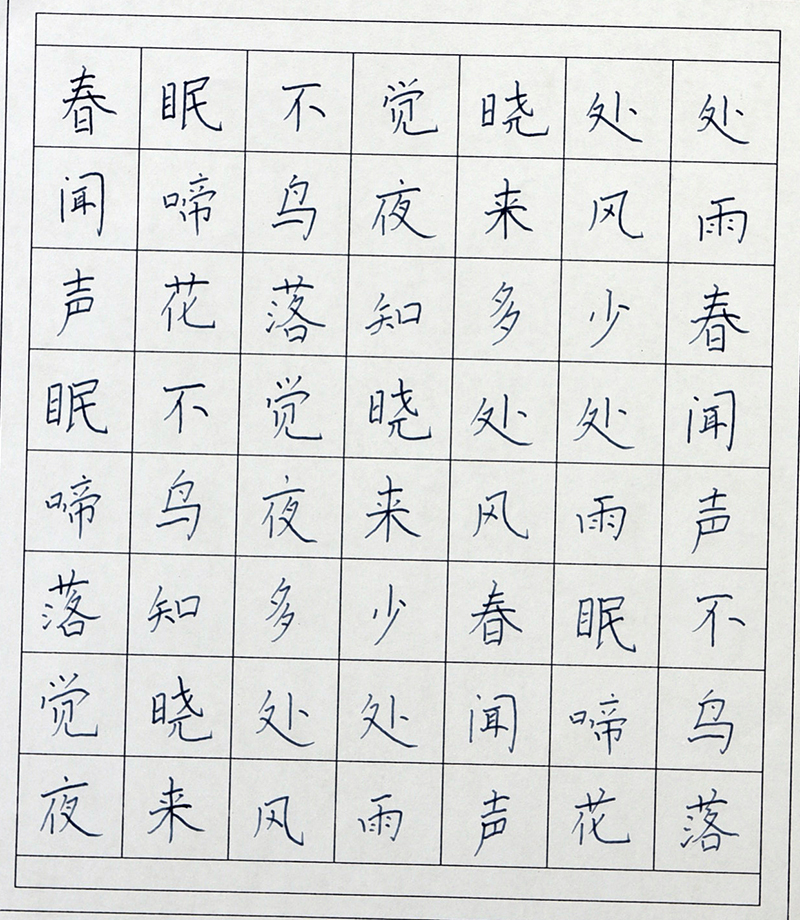 春眠不觉晓处处
闻啼鸟夜来风雨
声花落知多少春
眠不觉晓处处闻
啼鸟夜来风雨声
落知多少春眠不
觉晓处处闻啼鸟
夜来风雨声花落